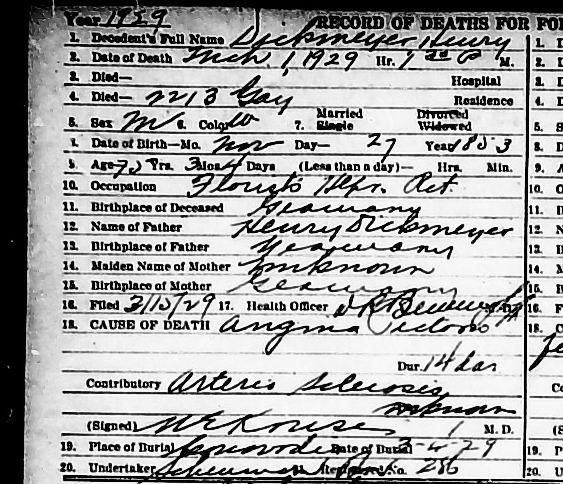 Year 1929 RECORD OF DEATHS FOR FO
1. Decedent's Full Name Dickmeyer, Henry
2. Date of Death Mch 1, 1929 Hr. 1 P M.
3. Died— Hospital
4. Died— 2213 Gay Residence
5. Sex M 6. Color W 7. Married Single Divorced Widowed
8. Date of Birth—Mo. Nov Day— 27 Year 1853
9. Age 75 Yrs. 3 Mos. 4 Days (Less than a day)— Hrs. Min.
10. Occupation Florists Hlpr. Ret.
11. Birthplace of Deceased Germany
12. Name of Father Henry Dickmeyer
13. Birthplace of Father Germany
14. Maiden Name of Mother Unknown
15. Birthplace of Mother Germany
16. Filed 3/15/29 17. Health Officer M.D.
18. CAUSE OF DEATH Angina Pectoris
Dur. 14 da
Contributory Arterio Sclerosis
unknown
(Signed) M. D.
19. Place of Burial Concordia Date of Burial 3-4-29
20. Undertaker Registered No. 286